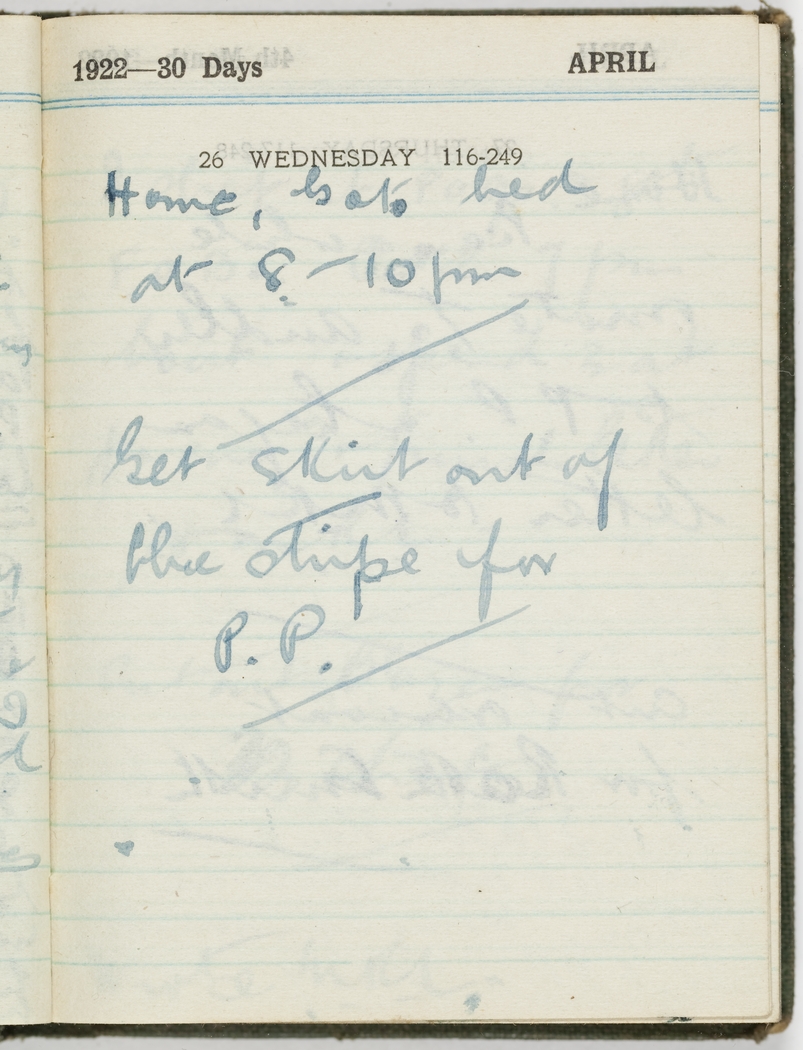 1922—30 Days APRIL
26 WEDNESDAY 116-249
Home, Go to bed
at 8-10 pm
Get Skirt out of
blue stripe for
P.P.